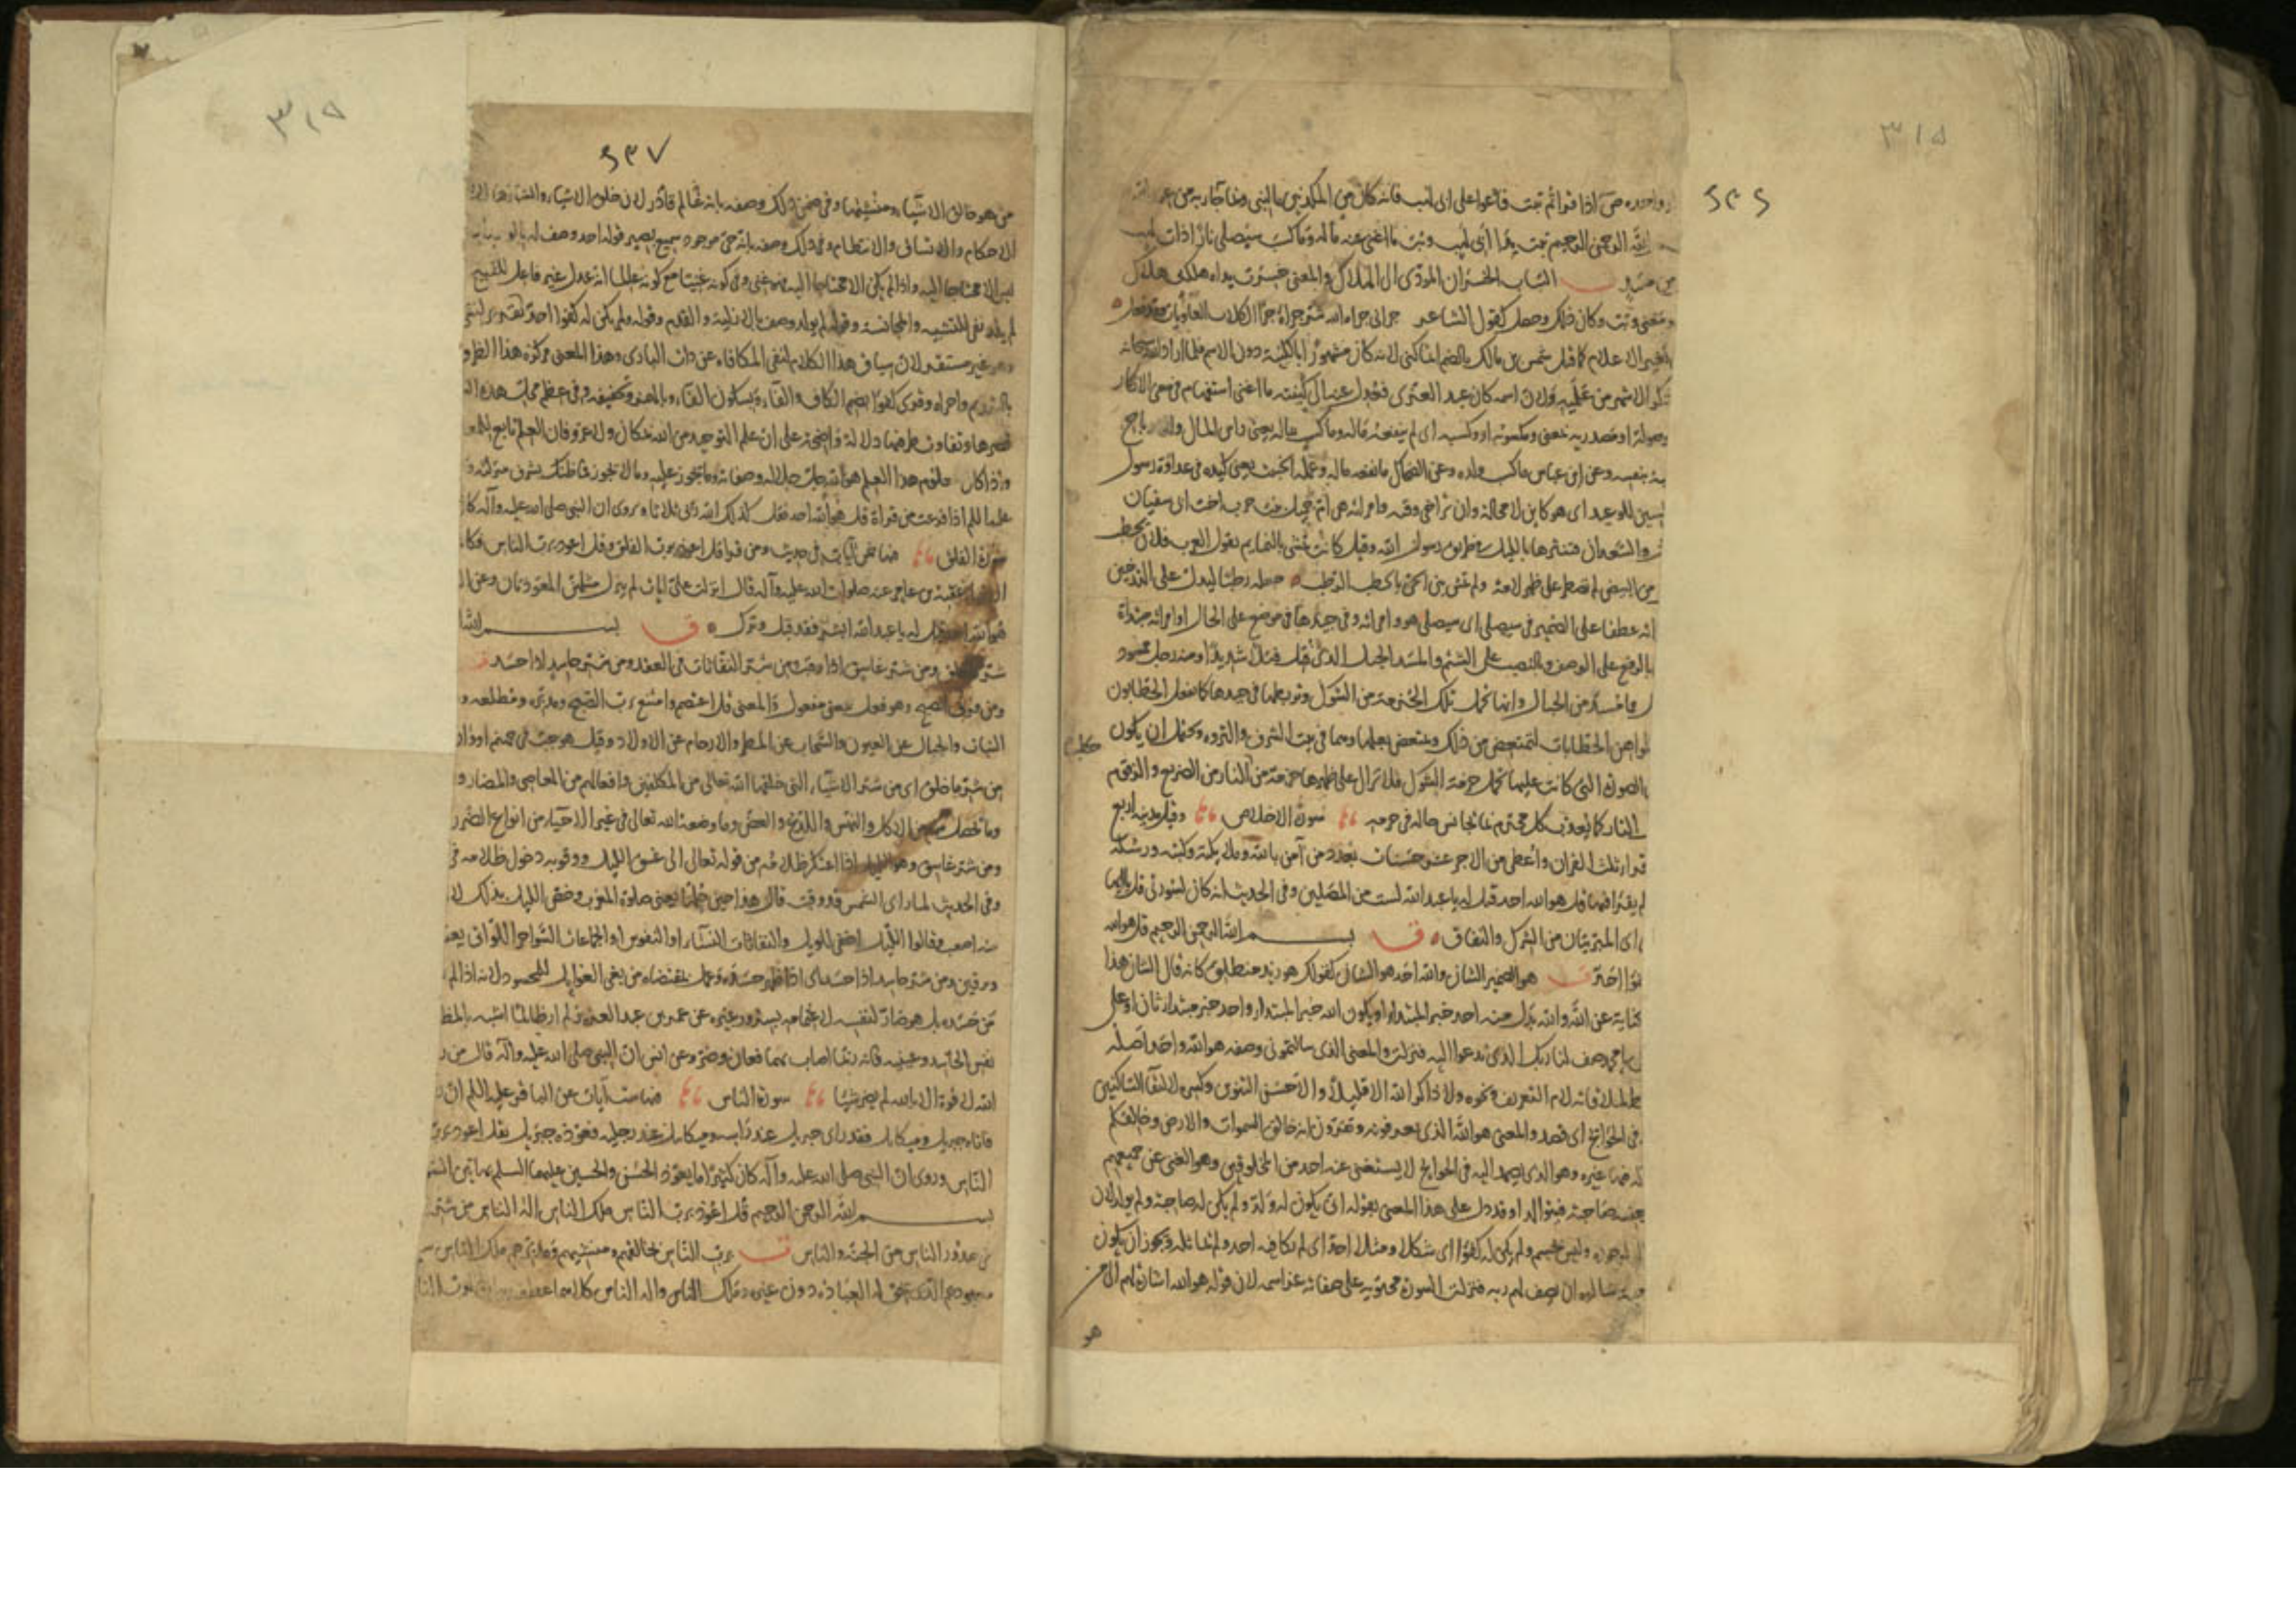 ٣١٥
دار واحده ص اذا قراتم تبت فادعوا على ابى لهب فانه كان من المكذبين بالنبى وبما جاء به من عند الله
الله الرحمن الرحيم تبت يدا ابى لهب وتب ما اغنى عنه ماله وما كسب سيصلى نارا ذات لهب
من مسد التباب الخسران المودى الى الهلاك والمعنى خسرت يداه هلكتا هلاك
ومعنى وتب وكان ذلك وحصل كقول الشاعر جزانى جزاه الله شر جزائه جزاء الكلاب العاويات وقد فعل
بتغيير الاعلام كما قيل شمس بن مالك بالضم انما كنى لانه كان مشهورا بالكنية دون الاسم فلما اراد الله سبحانه
ذكر الاشهر من علميه ولان اسمه كان عبد العزى فعدل عنه الى كنيته ما اغنى استفهام فى معنى الانكار
موصولة او مصدرية بمعنى ومكسوبه او وكسبه اى لم ينفعه ماله وما كسب بماله يعنى راس المال والارباح
بنفسه وعن ابن عباس ما كسب ولده وعن الضحاك ما نفعه ماله وعمله الخبيث يعنى كيده فى عداوة رسول
السين للوعيد اى هو كاين لا محالة وان تراخى وقته وامراته هى ام جميل بنت حرب اخت ابى سفيان
والسعدان فتنثرها بالليل بطريق رسول الله وقيل كانت تمشى بالنمايم يقول العرب فلان يحطب
من البيض لم تصطد على ظهر لامة ولم تمش بين الحى بالحطب الرطب جعله رطبا ليدل على التدخين
انه عطفا على الضمير فى سيصلى اى سيصلى هو وامراته وفى جيدها فى موضع على الحال او امراته مبتداة
بالرفع على الوصف وبالنصب على الشتم والمسد الحبل الذى فتل فتلا شديدا ومنه رجل ممسود
مما مسد من الحبال وانها تحمل تلك الحزمة من الشوك وتربطها فى جيدها كما يفعل الحطابون
المواهن الحطابات لتمتعض من ذلك ويمتعض بعلها وهما فى بيت الشرف والثروه ويحتمل ان يكون
الصورة التى كانت عليها تحمل حزمة الشوك فلا تزال على ظهرها حزمة من النار من الضريع والزقوم
النار كما يعذب كل مجرم بما يجانس حاله فى جرمه سورة الاخلاص وقيل مدنية اربع
قرا ثلث القران واعطى من الاجر عشر حسنات بعدد من آمن بالله وملائكته وكتبه ورسله
لم يقرا فيها قل هو الله احد قيل له يا عبد الله لست من المصلين وفى الحديث انه كان
اى المبرئتان من الشرك والنفاق ق بسم الله الرحمن الرحيم قل هو الله
كفوا احد هو الضمير الشان والله احد هو الشان كقولك هو زيد منطلق كانه قال الشان هذا
كناية عن الله والله بدل منه احد خبر المبتدا او يكون الله خبر المبتدا واحد خبر مبتدا ثان او على
يا محمد صف لنا ربك الذى تدعوا اليه فنزلت والمعنى الذى سالتمونى وصفه هو الله واحد واصله
لملاقاته لام التعريف ونحوه ولا ذاكر الله الا قليلا والاحسن التنوين وكسره لالتقا الساكنين
فى الحوايج اى قصد والمعنى هو الله الذى تعرفونه وتقرون بانه خالق السموات والارض وخالقكم
فيها غيره وهو الذى يصمد اليه فى الحوايج لا يستغنى عنه احد من المخلوقين وهو الغنى عن جميعهم
جنسه صاحبة فيتوالدا وقد دل على هذا المعنى بقوله انى يكون له ولد ولم يكن له صاحبة ولم يولد لان
وليس بجسم ولم يكن له كفوا اى شكلا ومثلا احد اى لم يكافيه احد ولم يماثله ويجوز ان يكون
سالوه ان يصف لهم ربه فنزلت السورة محتوية على صفاته عز اسمه لان قوله هو الله اشارة لهم الى من
هو
٣١٥
من هو خالق الاشياء ومنشيها وفى ضمن ذلك وصفه بانه عالم قادر لان خلق الاشياء
الاحكام والاتساق والانتظام وفى ذلك وصفه بانه حى موجود سميع بصير قوله احد وصف له بالوحدانية
ليس الا محتاجا اليه واذا لم يكن الا محتاجا اليه فهو غنى وفى كونه غنيا مع كونه عالما انه عدل غير فاعل للقبيح
لم يلد نفى للتشبيه والمجانسة وقوله لم يولد وصف بالازلية والقدم وقوله ولم يكن له كفوا احد تقرير لنفى
غير مستقر لان سياق هذا الكلام لنفى المكافاة عن ذات البارى وهذا المعنى مركزه هذا الظرف
بالتقديم واحراه وقرى كفوا بضم الكاف والفاء وبسكون الفاء وبالهمز وتخفيفه وفى عظم محل هذه
قصرها وتقارب طرفيها دلالة واضحة على ان علم التوحيد من الله بمكان ولا غرو فان العلم تابع للمعلوم
واذا كان معلوم هذا العلم هو الله جلت جلاله وصفاته وما يجوز عليه وما لا يجوز فما ظنك بشرف منزلته
عليه السلم اذا فرغت من قراة قل هو الله احد فقل كذلك الله ربى ثلاثا وروى ان النبى صلى الله عليه وآله كان
سورة الفلق خمس آيات فى حديث ومن قرا قل اعوذ برب الفلق وقل اعوذ برب الناس فكا
عقبة بن عامر عنه صلوات الله عليه وآله قال انزلت على ايات لم ينزل مثلهن المعوذتان وعن
هو الله احد قيل له يا عبد الله ابشر فقد قبل وترك ق بسم الله
شر ما خلق ومن شر غاسق اذا وقب ومن شر النفاثات فى العقد ومن شر حاسد اذا حسد
الصبح وهو فعل بمعنى مفعول والمعنى قل اعتصم وامتنع برب الصبح ومدبره ومطلعه و
النبات والجبال عن العيون والسحاب عن المطر والارحام عن الاولاد وقيل هو جب فى جهنم او واد
من شر ما خلق اى من شر الاشياء التى خلقها الله تعالى من المكلفين وافعالهم من المعاصى والمضار و
وما يحصل من الاكل والنهس واللدغ والعض وما وضعه الله تعالى فى غير الاحياء من انواع الضرر
ومن شر غاسق وهو الليل اذا اعتكر ظلامه من قوله تعالى الى غسق الليل ووقوبه دخول ظلامه فى
وفى الحديث لما راى الشمس قد وقبت قال هذا حين حلها يعنى صلوة المغرب وخص الليل بذلك لان
منه اصعب وقالوا الليل اخفى للويل والنفاثات النساء او النفوس او الجماعات السواحر اللواتى يعقدن
ويرقين ومن شر حاسد اذا حسد اى اذا ظهر حسده وعمل بمقتضاه من بغى الغوايل للمحسود لانه اذا لم
من حسده بل هو ضار لنفسه لاغتمامه بسرور غيره عن عمر بن عبد العزيز لم ار ظالما اشبه بالمظلوم
نفس الحاسد وعينه فانه ربما اصاب بهما فعان وضر وعن انس ان النبى صلى الله عليه وآله قال من
الله لا قوة الا بالله لم يضر شيئا سورة الناس ست آيات عن الباقر عليه السلم ان
فاتاه جبريل وميكايل فقعد جبريل عند راسه وميكايل عند رجليه فعوذه جبريل بقل اعوذ برب
الناس وروى ان النبى صلى الله عليه وآله كان كثيرا ما يعوذ الحسن والحسين عليهما السلم بهاتين السورتين
بسم الله الرحمن الرحيم قل اعوذ برب الناس ملك الناس اله الناس من شر
فى صدور الناس من الجنة والناس ق برب الناس خالقهم ومنشيهم ومدبرهم ملك الناس
معبودهم الذى يحق له العبادة دون غيره وملك الناس واله الناس كلاهما عطف